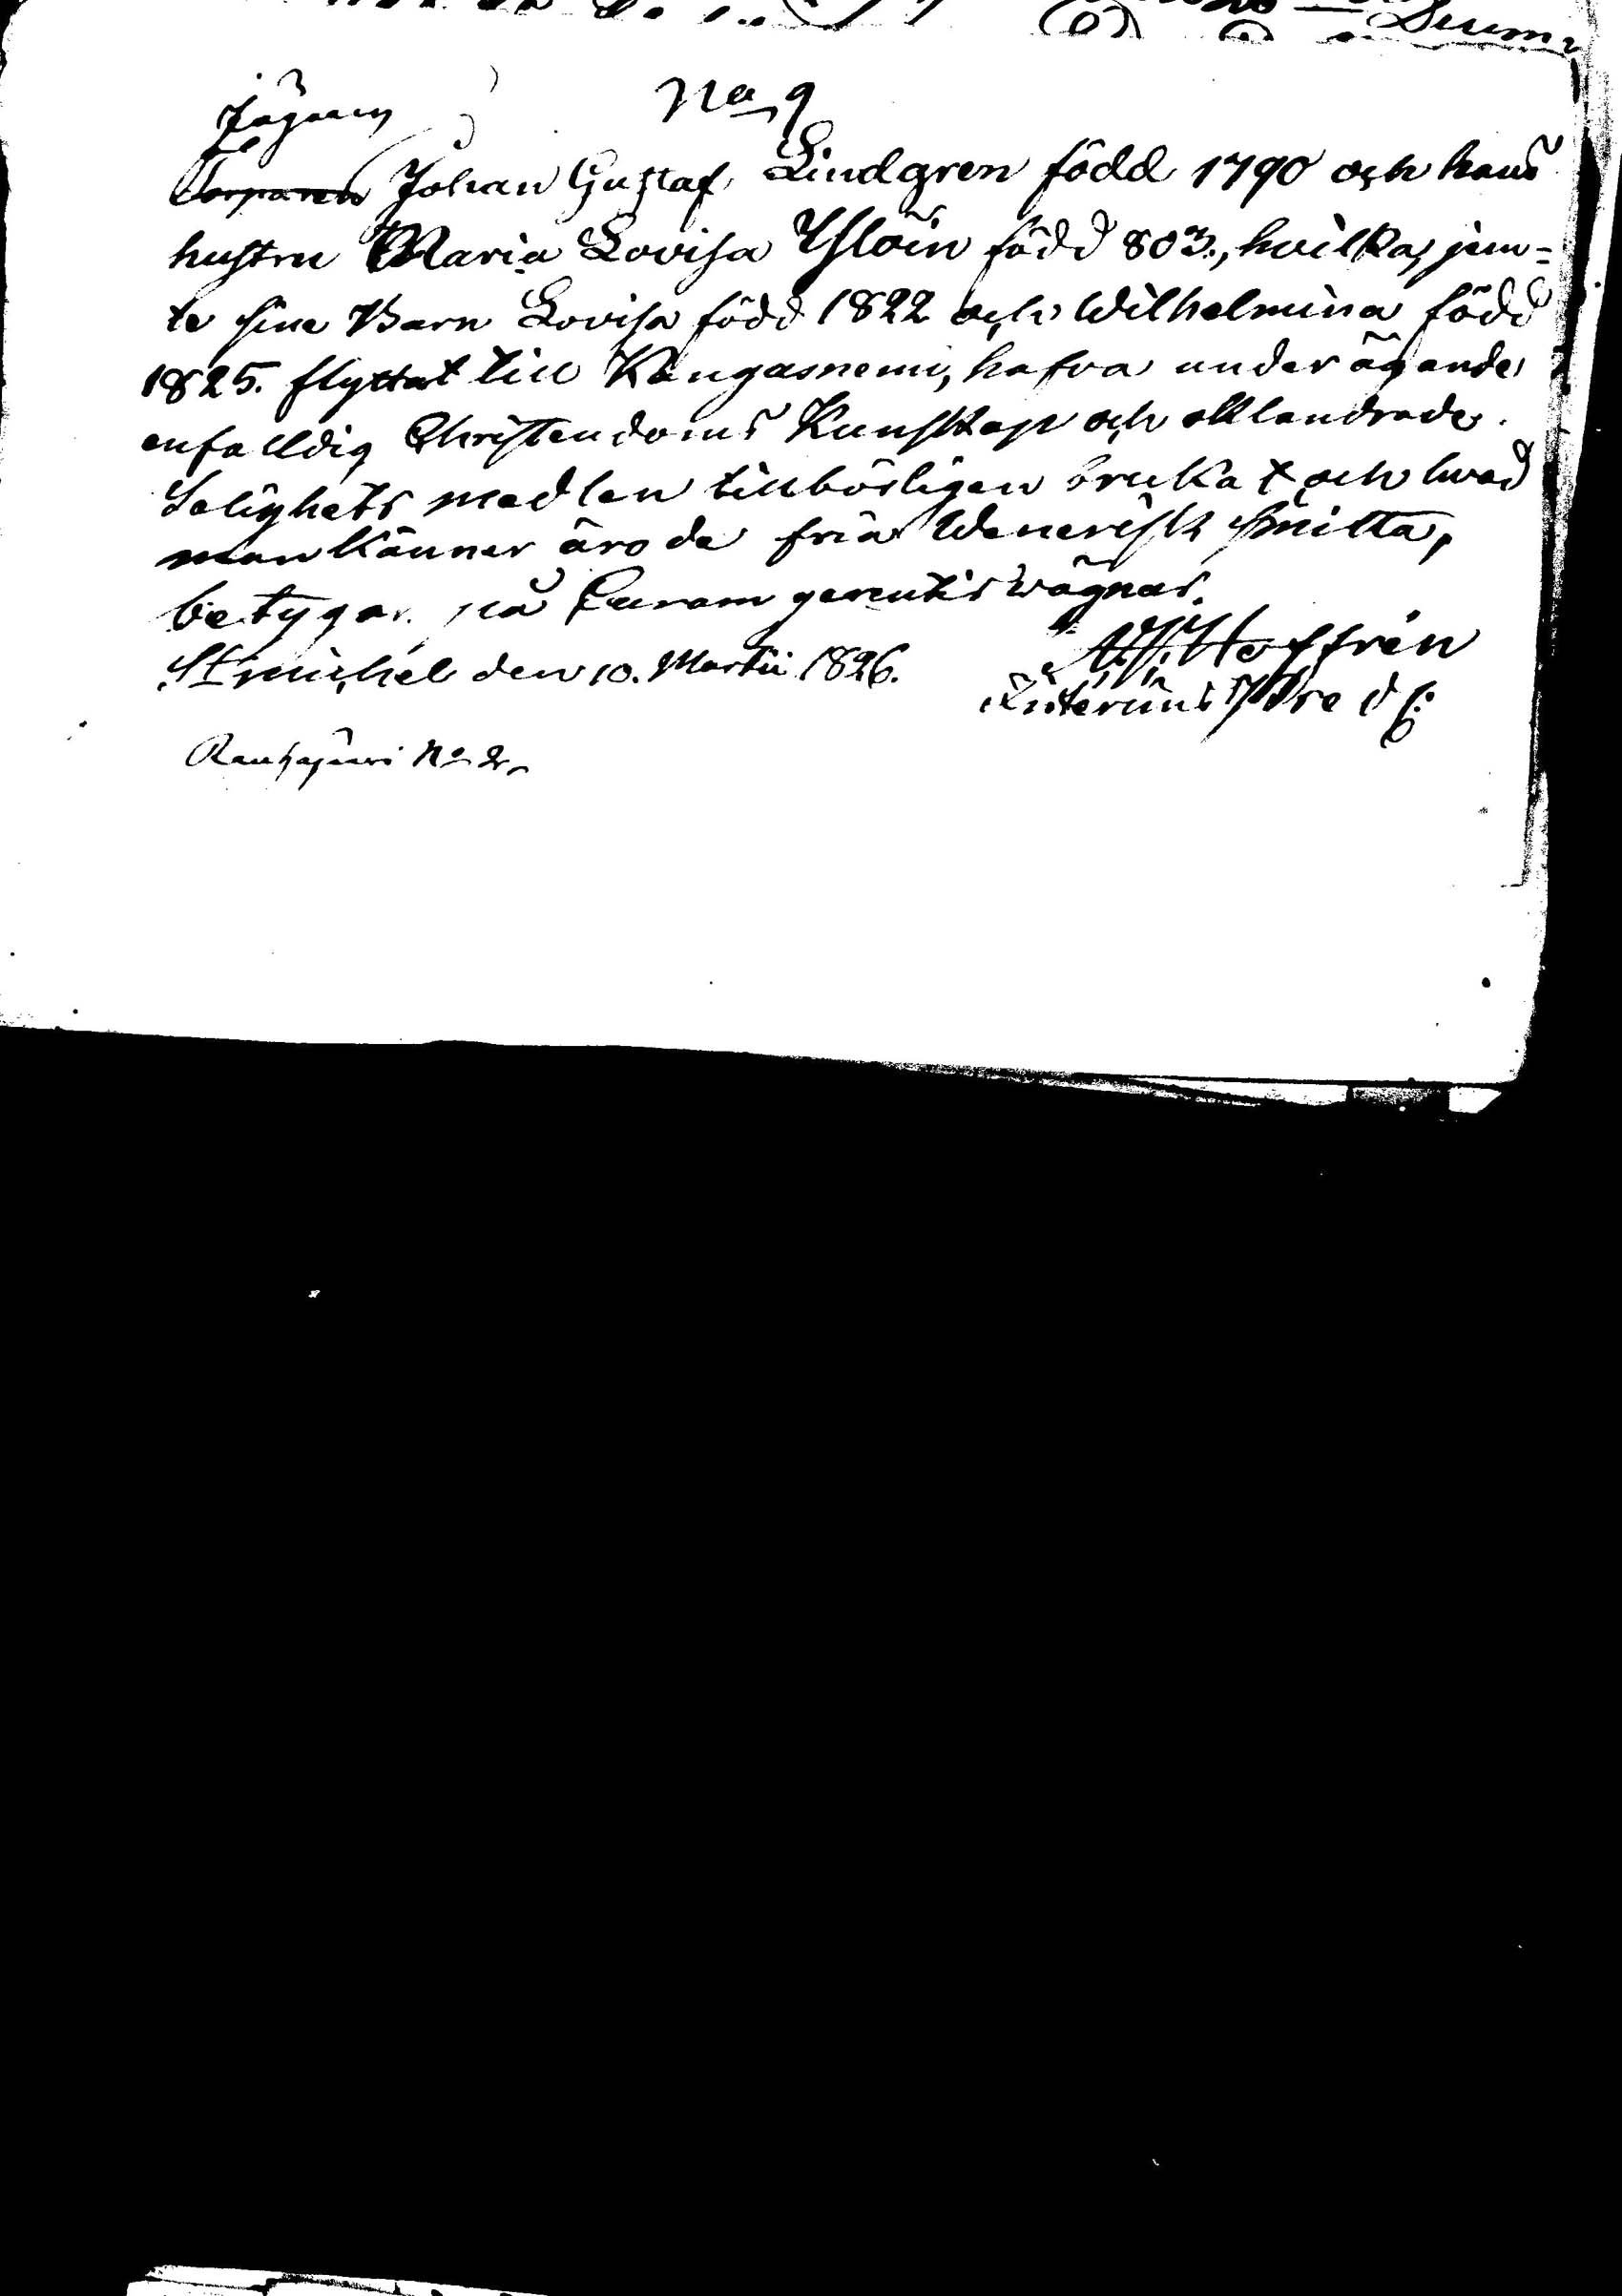 No 9
Jägaren
Torparen Johan Gustaf Lindgren född 1790 och hans
hustru Maria Lovisa Yslöin född 803., hvilka, jem=
te sina Barn Lovisa född 1822 och Wilhelmina född
1825. flyttat till Kangasnemi, hafva under ägande
enfalldig Christendoms Kunskap och oklandrade
Salighets medlen tillbörligen brukat och hvad
man känner äro de fria Wenerisk smitta,
betygar på Curam gerentis wägnar.
St michel den 10. Martii 1826.
Hoffrén
Interims Pred:
Rauhajärvi No 2